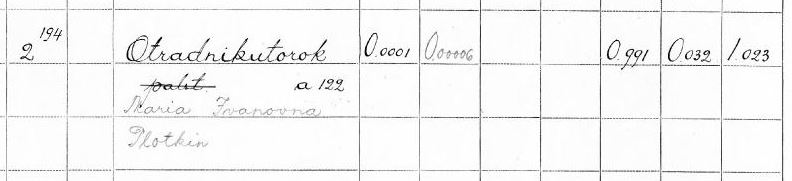 2 194 Otradnikutorok 0.0001 0.00006 0.991 0.032 1.023
palit a 122
Maria Ivanovna
Plotkin